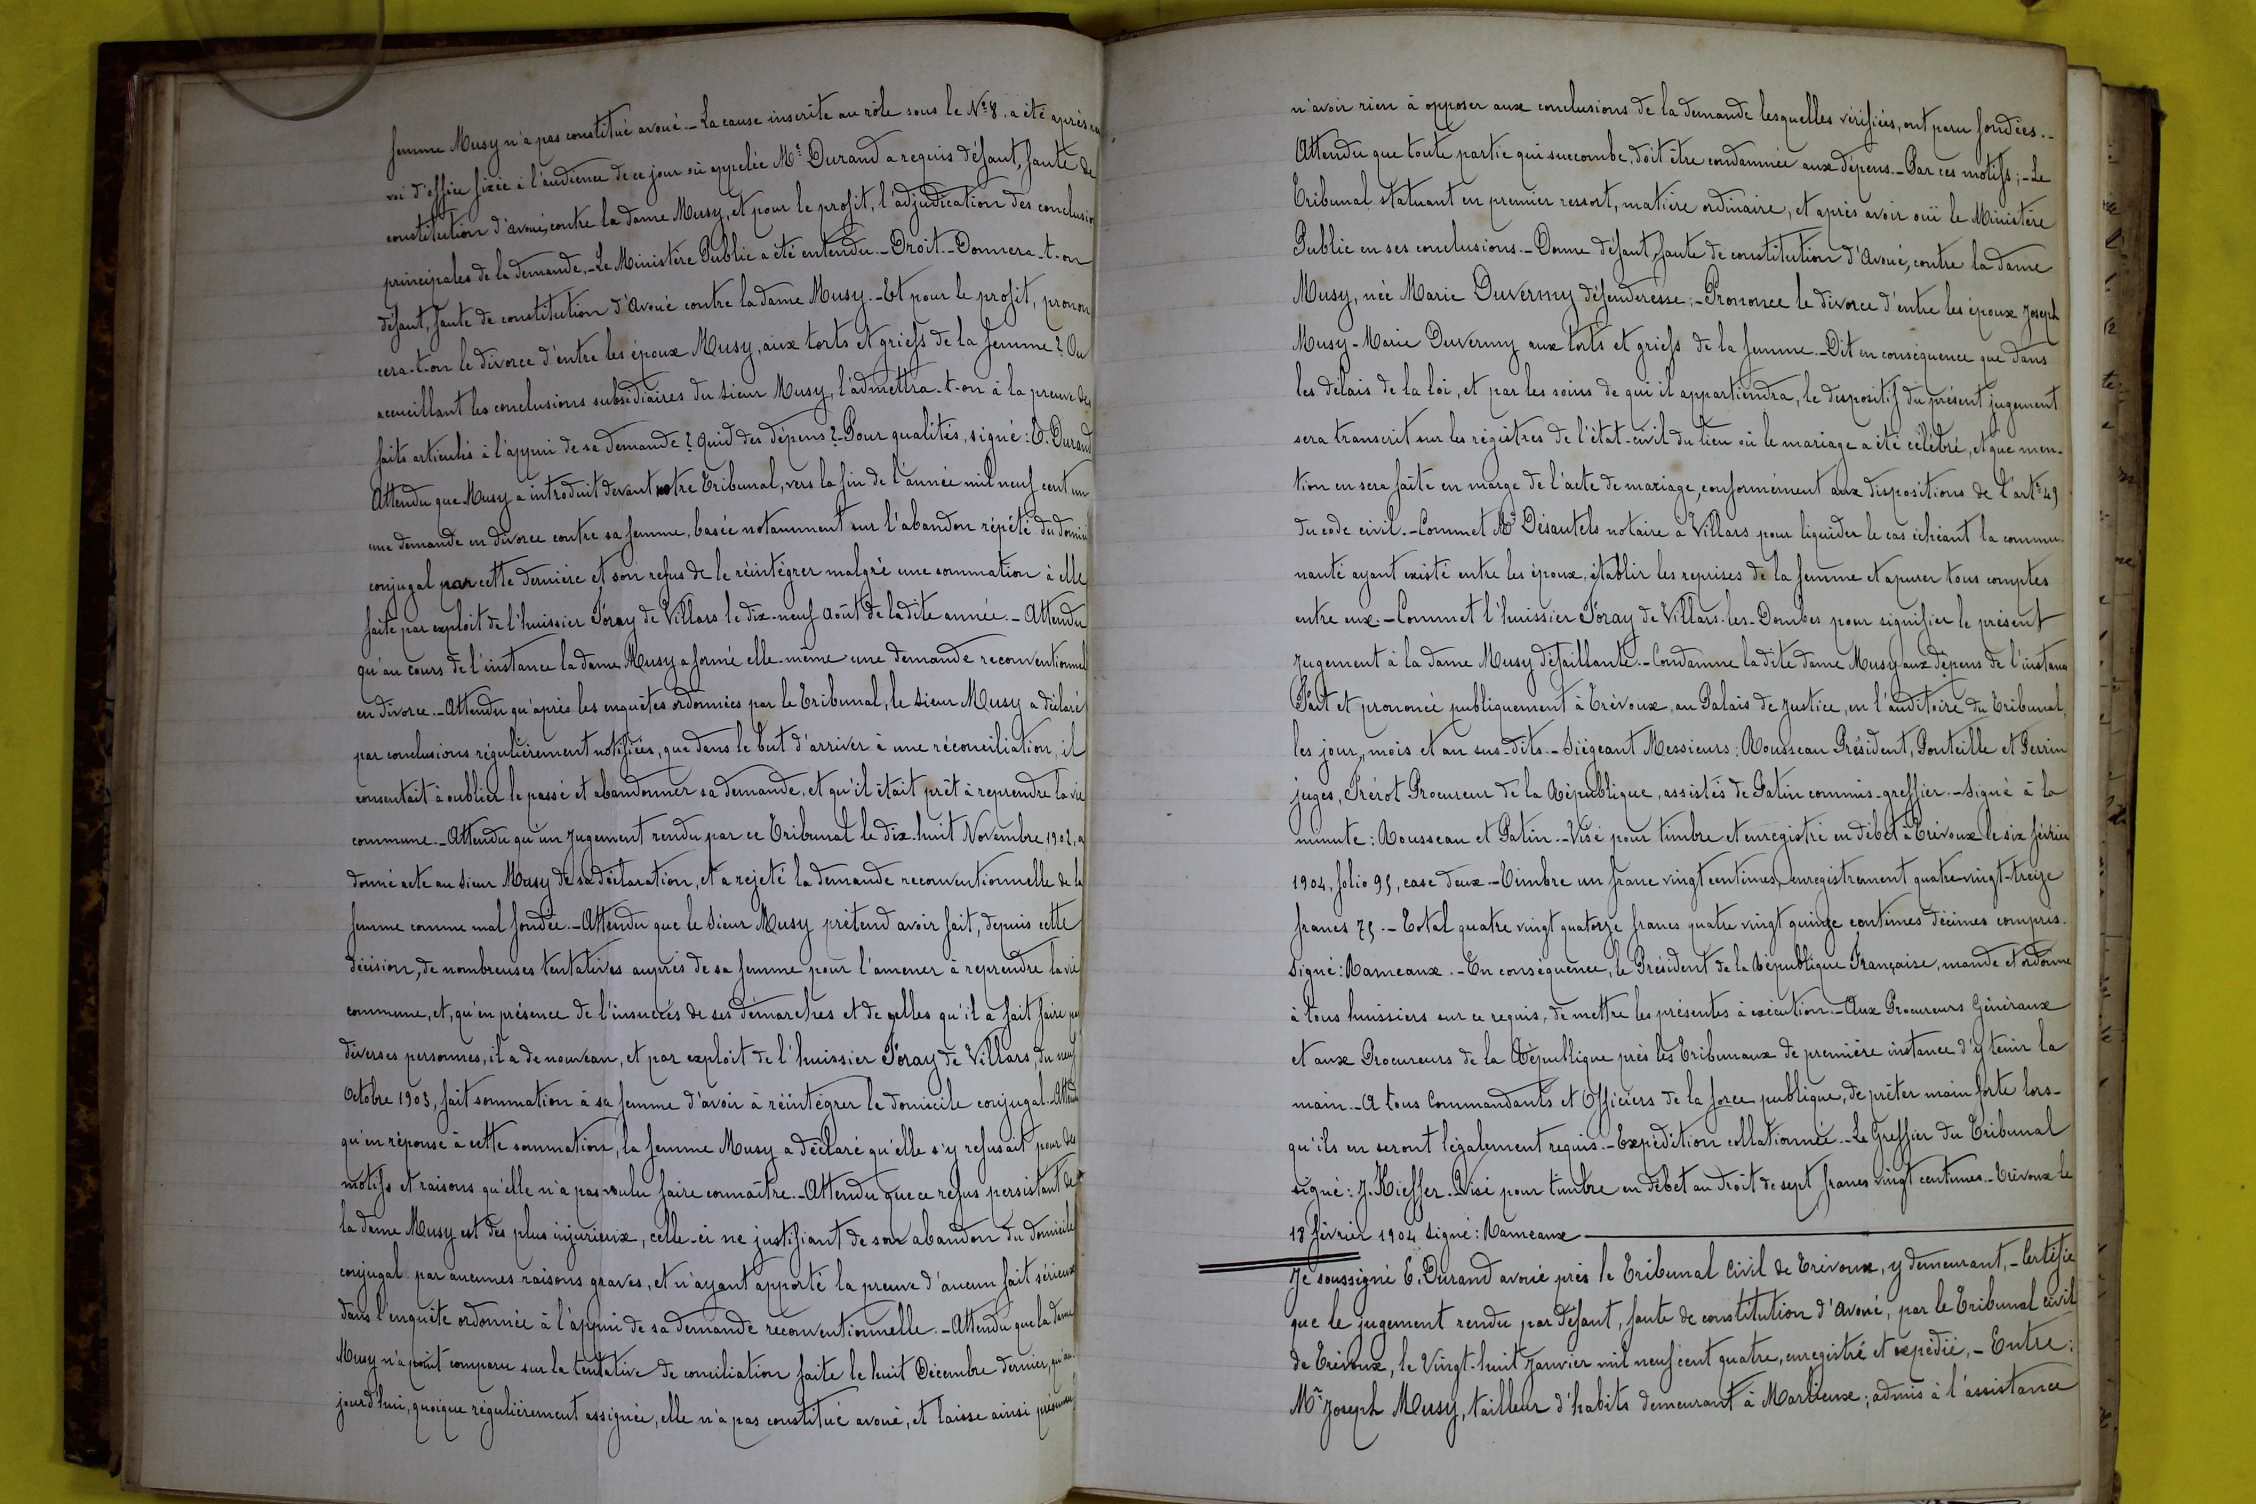 femme Musy n'a pas constitué avoué. - La cause inscrite au rôle sous le N° 8. a été après ren
voi d'office fixée à l'audience de ce jour où appelée Me Durand a requis défaut, faute de
constitution d'avoué, contre la dame Musy, et pour le profit, l'adjudication des conclusio
principales de la demande, - Le Ministère Public a été entendu. - Droit. - Donnera-t-on
défaut, faute de constitution d'avoué contre la dame Musy. - Et pour le profit, pronon
cera-t-on le divorce d'entre les époux Musy, aux torts et griefs de la femme? Ou
accueillant les conclusions subsidiaires du sieur Musy, l'admettra-t-on à la preuve des
faits articulés à l'appui de sa demande? Quid des dépens? - Pour qualités, signé: E. Durand
Attendu que Musy a introduit devant notre Tribunal, vers la fin de l'année mil neuf cent un
une demande en divorce contre sa femme, basée notamment sur l'abandon répété du domici
conjugal par cette dernière et son refus de le réintégrer malgré une sommation à elle
faite par exploit de l'huissier Foray de Villars le dix-neuf août de ladite année. - Attendu
qu'au cours de l'instance la dame Musy a formé elle-même une demande reconventionnel
en divorce. - Attendu qu'après les enquêtes ordonnées par le Tribunal, le sieur Musy a déclaré
par conclusions régulièrement notifiées, que dans le but d'arriver à une réconciliation, il
consentait à oublier le passé et abandonner sa demande, et qu'il était prêt à reprendre la vie
commune. - Attendu qu'un jugement rendu par ce Tribunal le dix-huit Novembre 1902, a
donné acte au sieur Musy de sa déclaration, et a rejeté la demande reconventionnelle de la
femme comme mal fondée. - Attendu que le sieur Musy prétend avoir fait, depuis cette
décision, de nombreuses tentatives auprès de sa femme pour l'amener à reprendre la vie
commune, et, qu'en présence de l'insuccès de ses démarches et de celles qu'il a fait faire par
diverses personnes, il a de nouveau, et par exploit de l'huissier Foray de Villars, du neuf
Octobre 1903, fait sommation à sa femme d'avoir à réintégrer le domicile conjugal. - Attendu
qu'en réponse à cette sommation, la femme Musy a déclaré qu'elle s'y refusait pour des
motifs et raisons qu'elle n'a pas voulu faire connaître. - Attendu que ce refus persistant de
la dame Musy est des plus injurieux, celle-ci ne justifiant de son abandon du domicile
conjugal par aucunes raisons graves, et n'ayant apporté la preuve d'aucun fait sérieux
dans l'enquête ordonnée à l'appui de sa demande reconventionnelle. - Attendu que la dame
Musy n'a point comparu sur la tentative de conciliation faite le huit Décembre dernier, qu'au
jourd'hui, quoique régulièrement assignée, elle n'a pas constitué avoué, et laisse ainsi présumer
n'avoir rien à opposer aux conclusions de la demande lesquelles vérifiées, ont paru fondées. -
Attendu que toute partie qui succombe, doit être condamnée aux dépens. - Par ces motifs; - Le
Tribunal statuant en premier ressort, matière ordinaire, et après avoir ouï le Ministère
Public en ses conclusions. - Donne défaut, faute de constitution d'Avoué, contre la dame
Musy, née Marie Duvermy défenderesse; - Prononce le divorce d'entre les époux Joseph
Musy - Marie Duvermy aux torts et griefs de la femme. - Dit en conséquence que dans
les délais de la loi, et par les soins de qui il appartiendra, le dispositif du présent jugement
sera transcrit sur les régistres de l'état-civil du lieu où le mariage a été célébré, et que men-
tion en sera faite en marge de l'acte de mariage, conformément aux dispositions de l'arte 49
du code civil. - Commet Me Désautels notaire à Villars pour liquider le cas échéant la commu-
nauté ayant existé entre les époux, établir les reprises de la femme et apurer tous comptes
entre eux. - Commet l'huissier Foray de Villars-les-Dombes pour signifier le présent
Jugement à la dame Musy défaillante. - Condamne ladite dame Musy aux dépens de l'instance
Fait et prononcé publiquement à Trévoux, au Palais de Justice, en l'auditoire du Tribunal,
les jour, mois et an sus-dits. - Siégeant Messieurs: Rousseau Président, Ponteille et Perrin
juges, Frérot Procureur de la République, assistés de Patin commis-greffier. - Signé à la
minute: Rousseau et Patin. - Visé pour timbre et enregistré en débet à Trévoux le six février
1904, folio 95, case deux. - Timbre un franc vingt centimes, enregistrement quatre-vingt-treize
francs 75. - Total quatre vingt quatorze francs quatre vingt quinze centimes décimes compris.
Signé: Rameaux. - En conséquence, le Président de la République Française, mande et ordonne
à tous huissiers sur ce requis, de mettre les présentes à exécution. - Aux Procureurs Généraux
et aux Procureurs de la République près les Tribunaux de première instance d'y tenir la
main. - A tous Commandants et Officiers de la force publique, de prêter main forte lors-
qu'ils en seront légalement requis. - Expédition collationnée. - Le Greffier du Tribunal
signé: J. Kieffer. Visé pour timbre en débet au droit de sept francs vingt centimes. - Trévoux le
18 février 1904 signé: Rameaux
Je soussigné E. Durand avoué près le Tribunal Civil de Trévoux, y demeurant, - Certifie
que le jugement rendu par défaut, faute de constitution d'Avoué, par le Tribunal civil
de Trévoux, le Vingt-huit Janvier mil neuf cent quatre, enregistré et expédié, - Entre:
Mr Joseph Musy, tailleur d'habits demeurant à Marlieux; admis à l'assistance